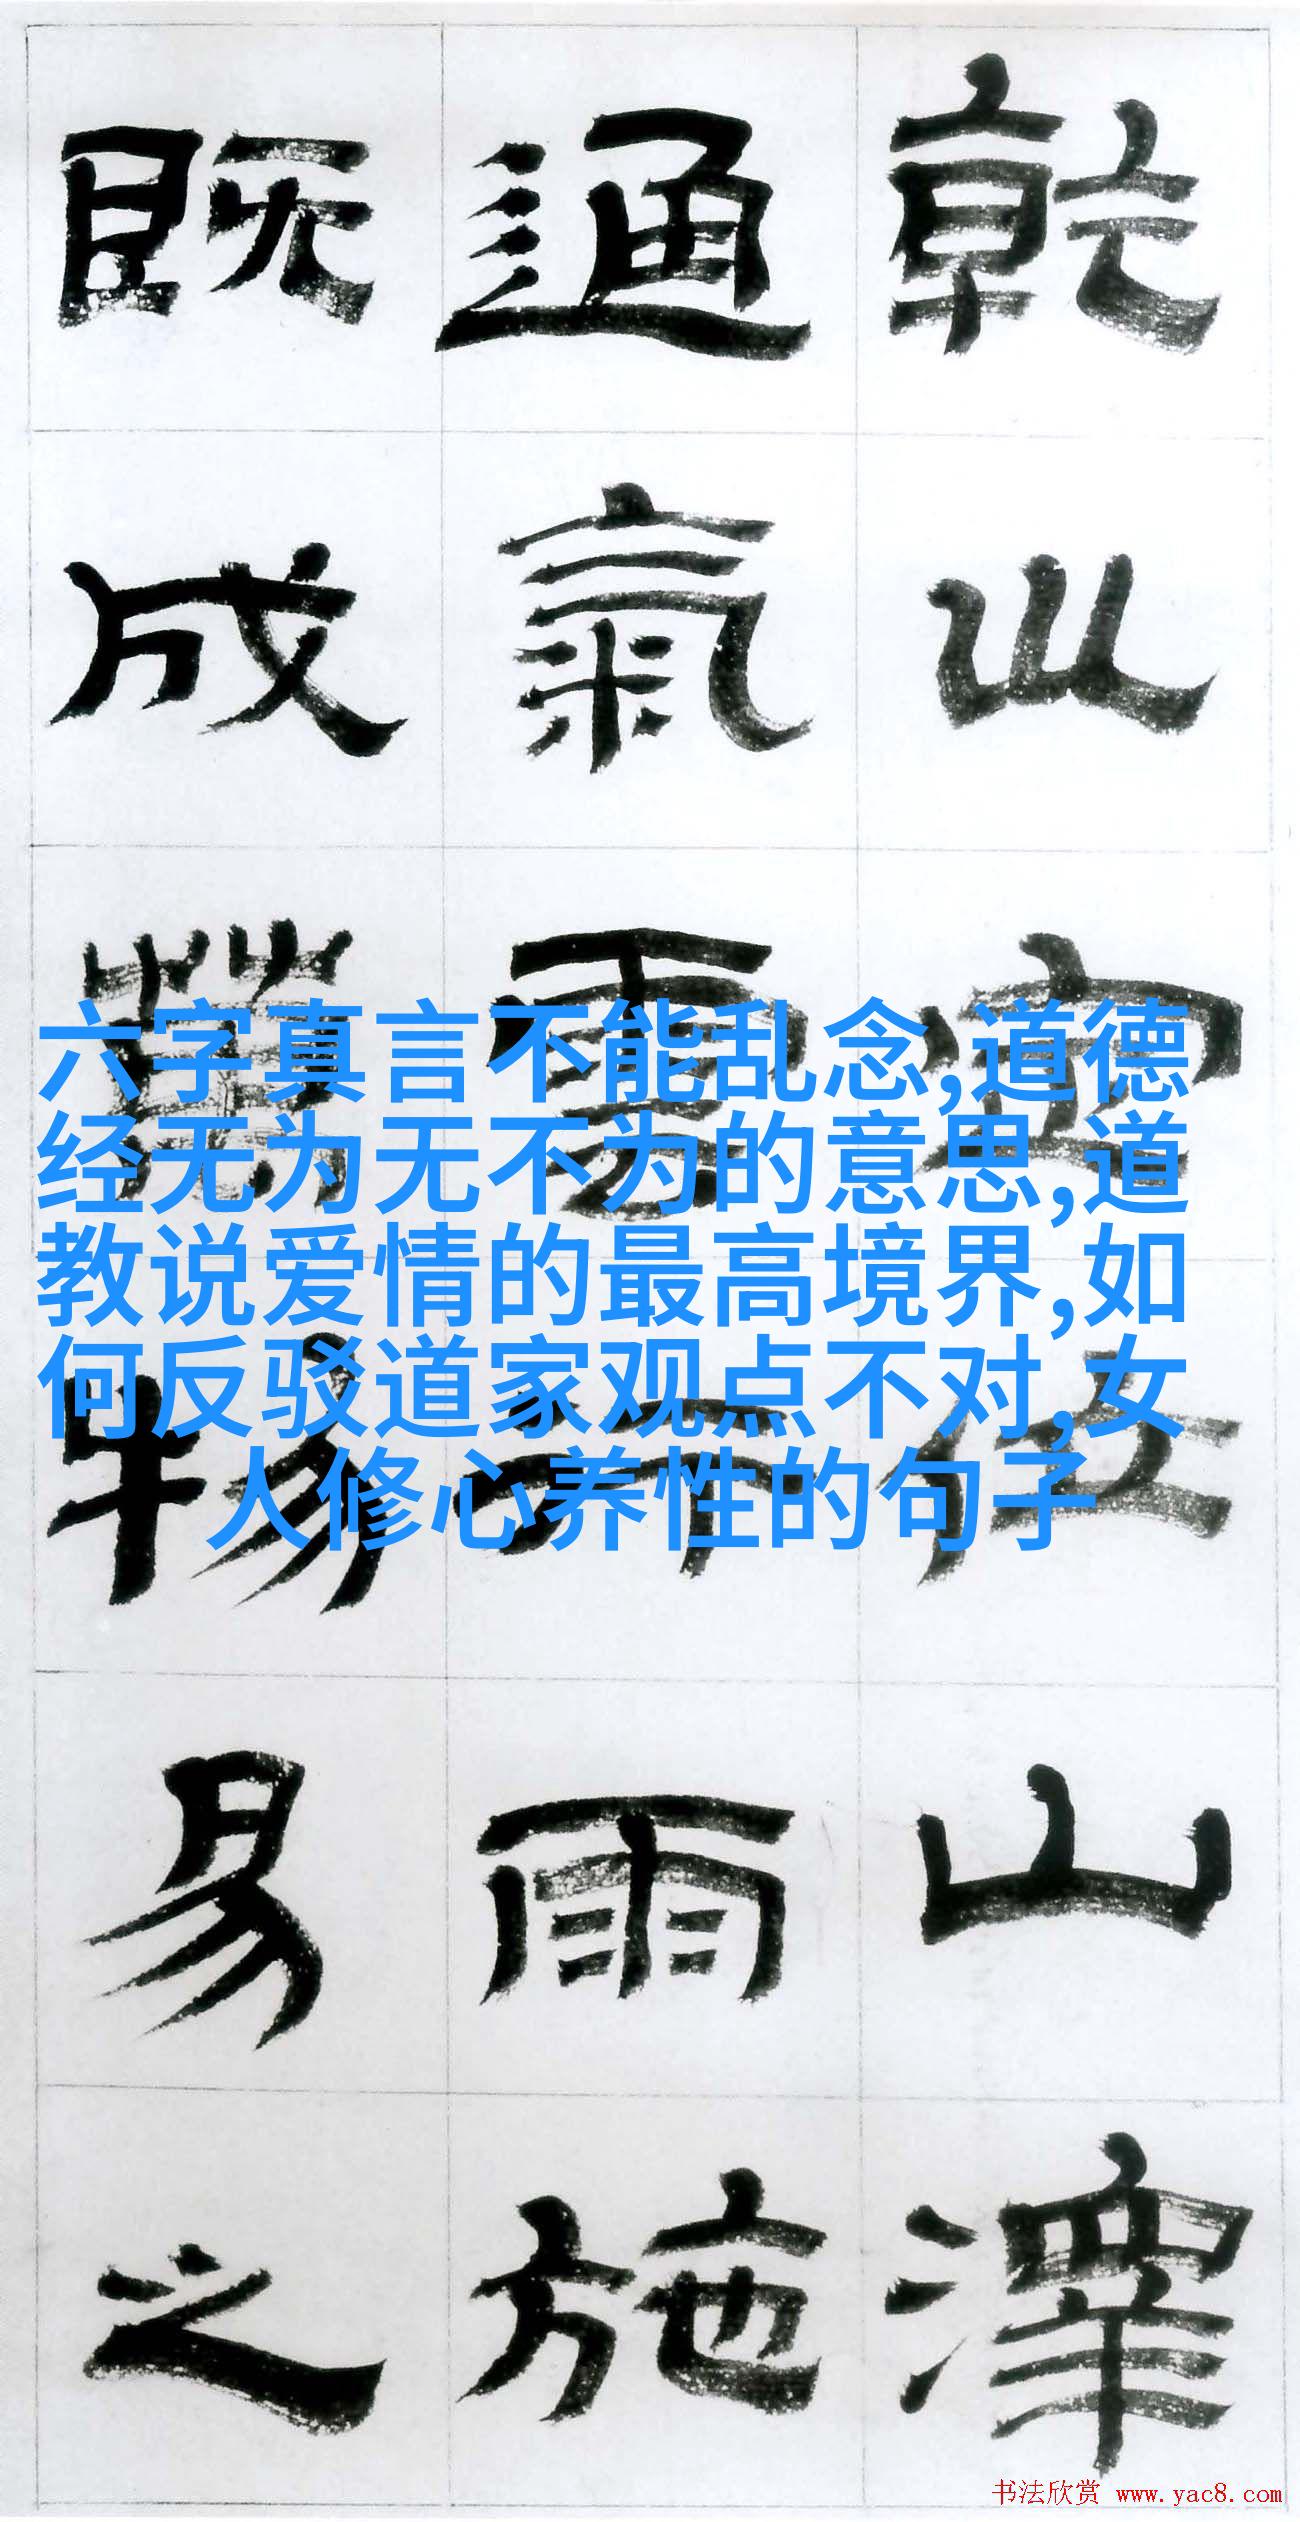 乾巛定位山澤
通氣雲行雨施
既成萬物易之
六字真言不能乱念,道德
经无为无不为的意思,道
教说爱情的最高境界,如
何反驳道家观点不对,女
人修心养性的句子
书法欣赏 www.yac8.com